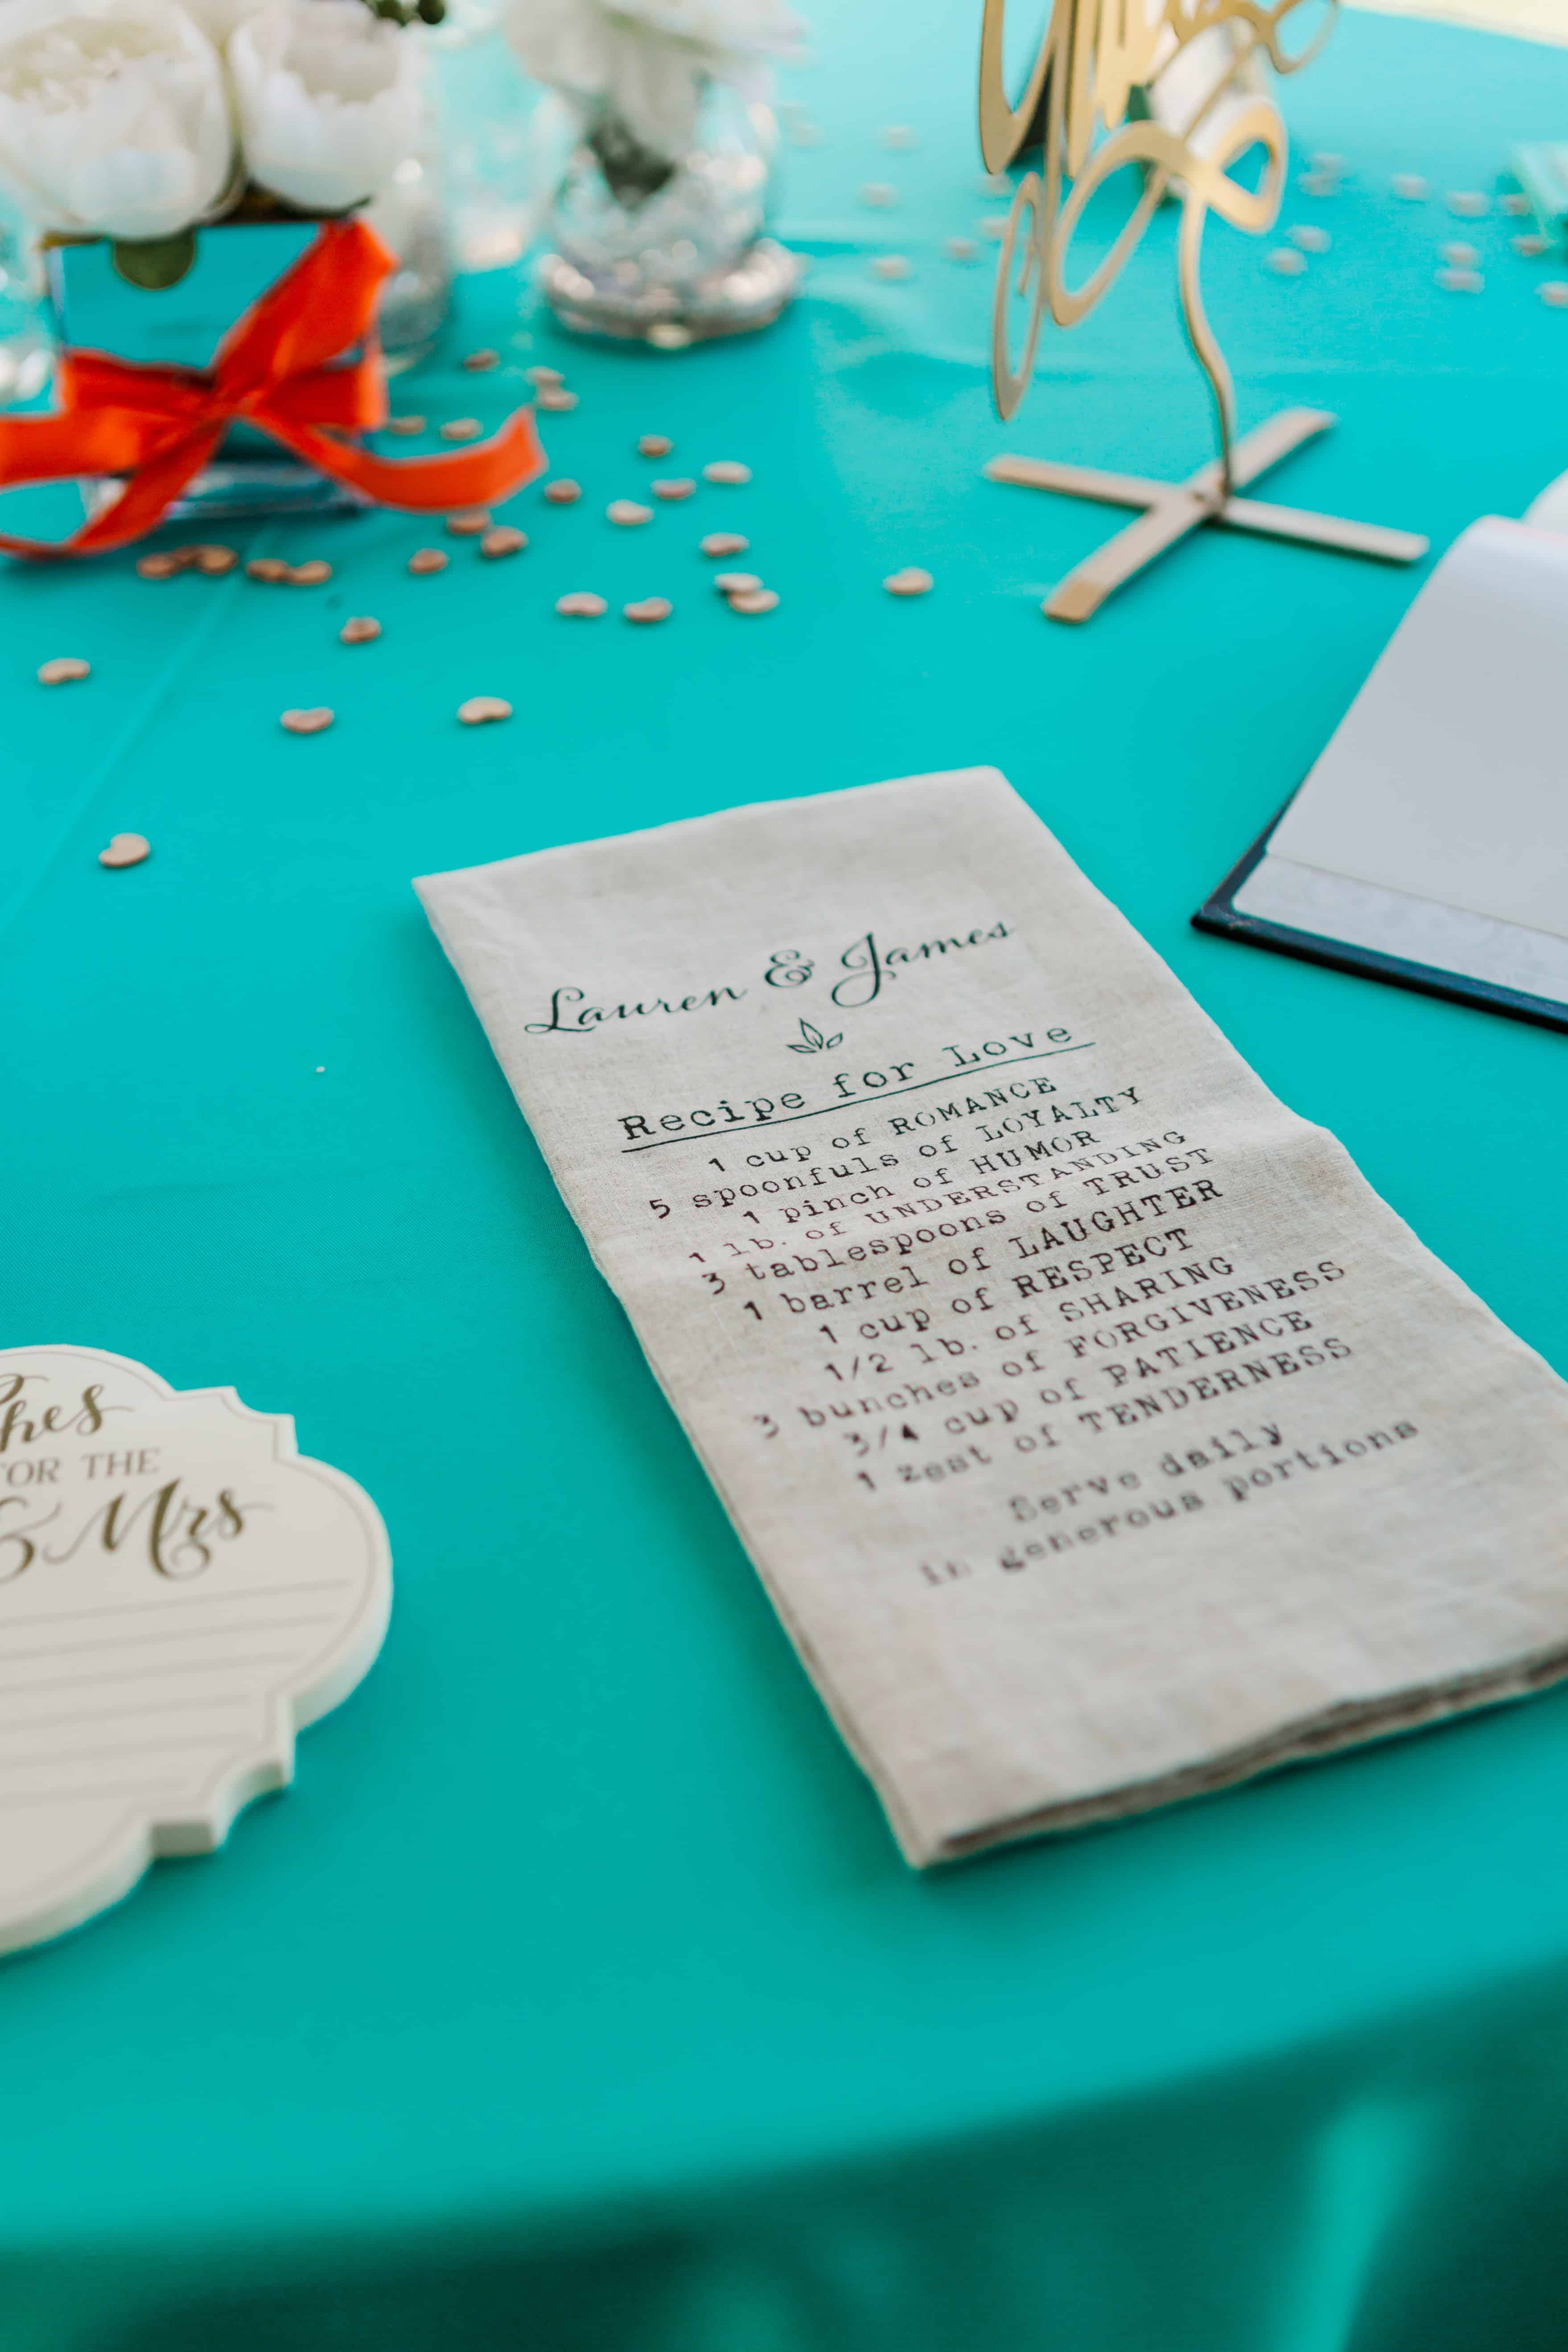 Lauren & James
Recipe for Love
1 cup of ROMANCE
5 spoonfuls of LOYALTY
1 pinch of HUMOR
1 lb. of UNDERSTANDING
3 tablespoons of TRUST
1 barrel of LAUGHTER
1 cup of RESPECT
1/2 lb. of SHARING
3 bunches of FORGIVENESS
3/4 cup of PATIENCE
1 zest of TENDERNESS
Serve daily
in generous portions
hes
OR THE
& Mrs